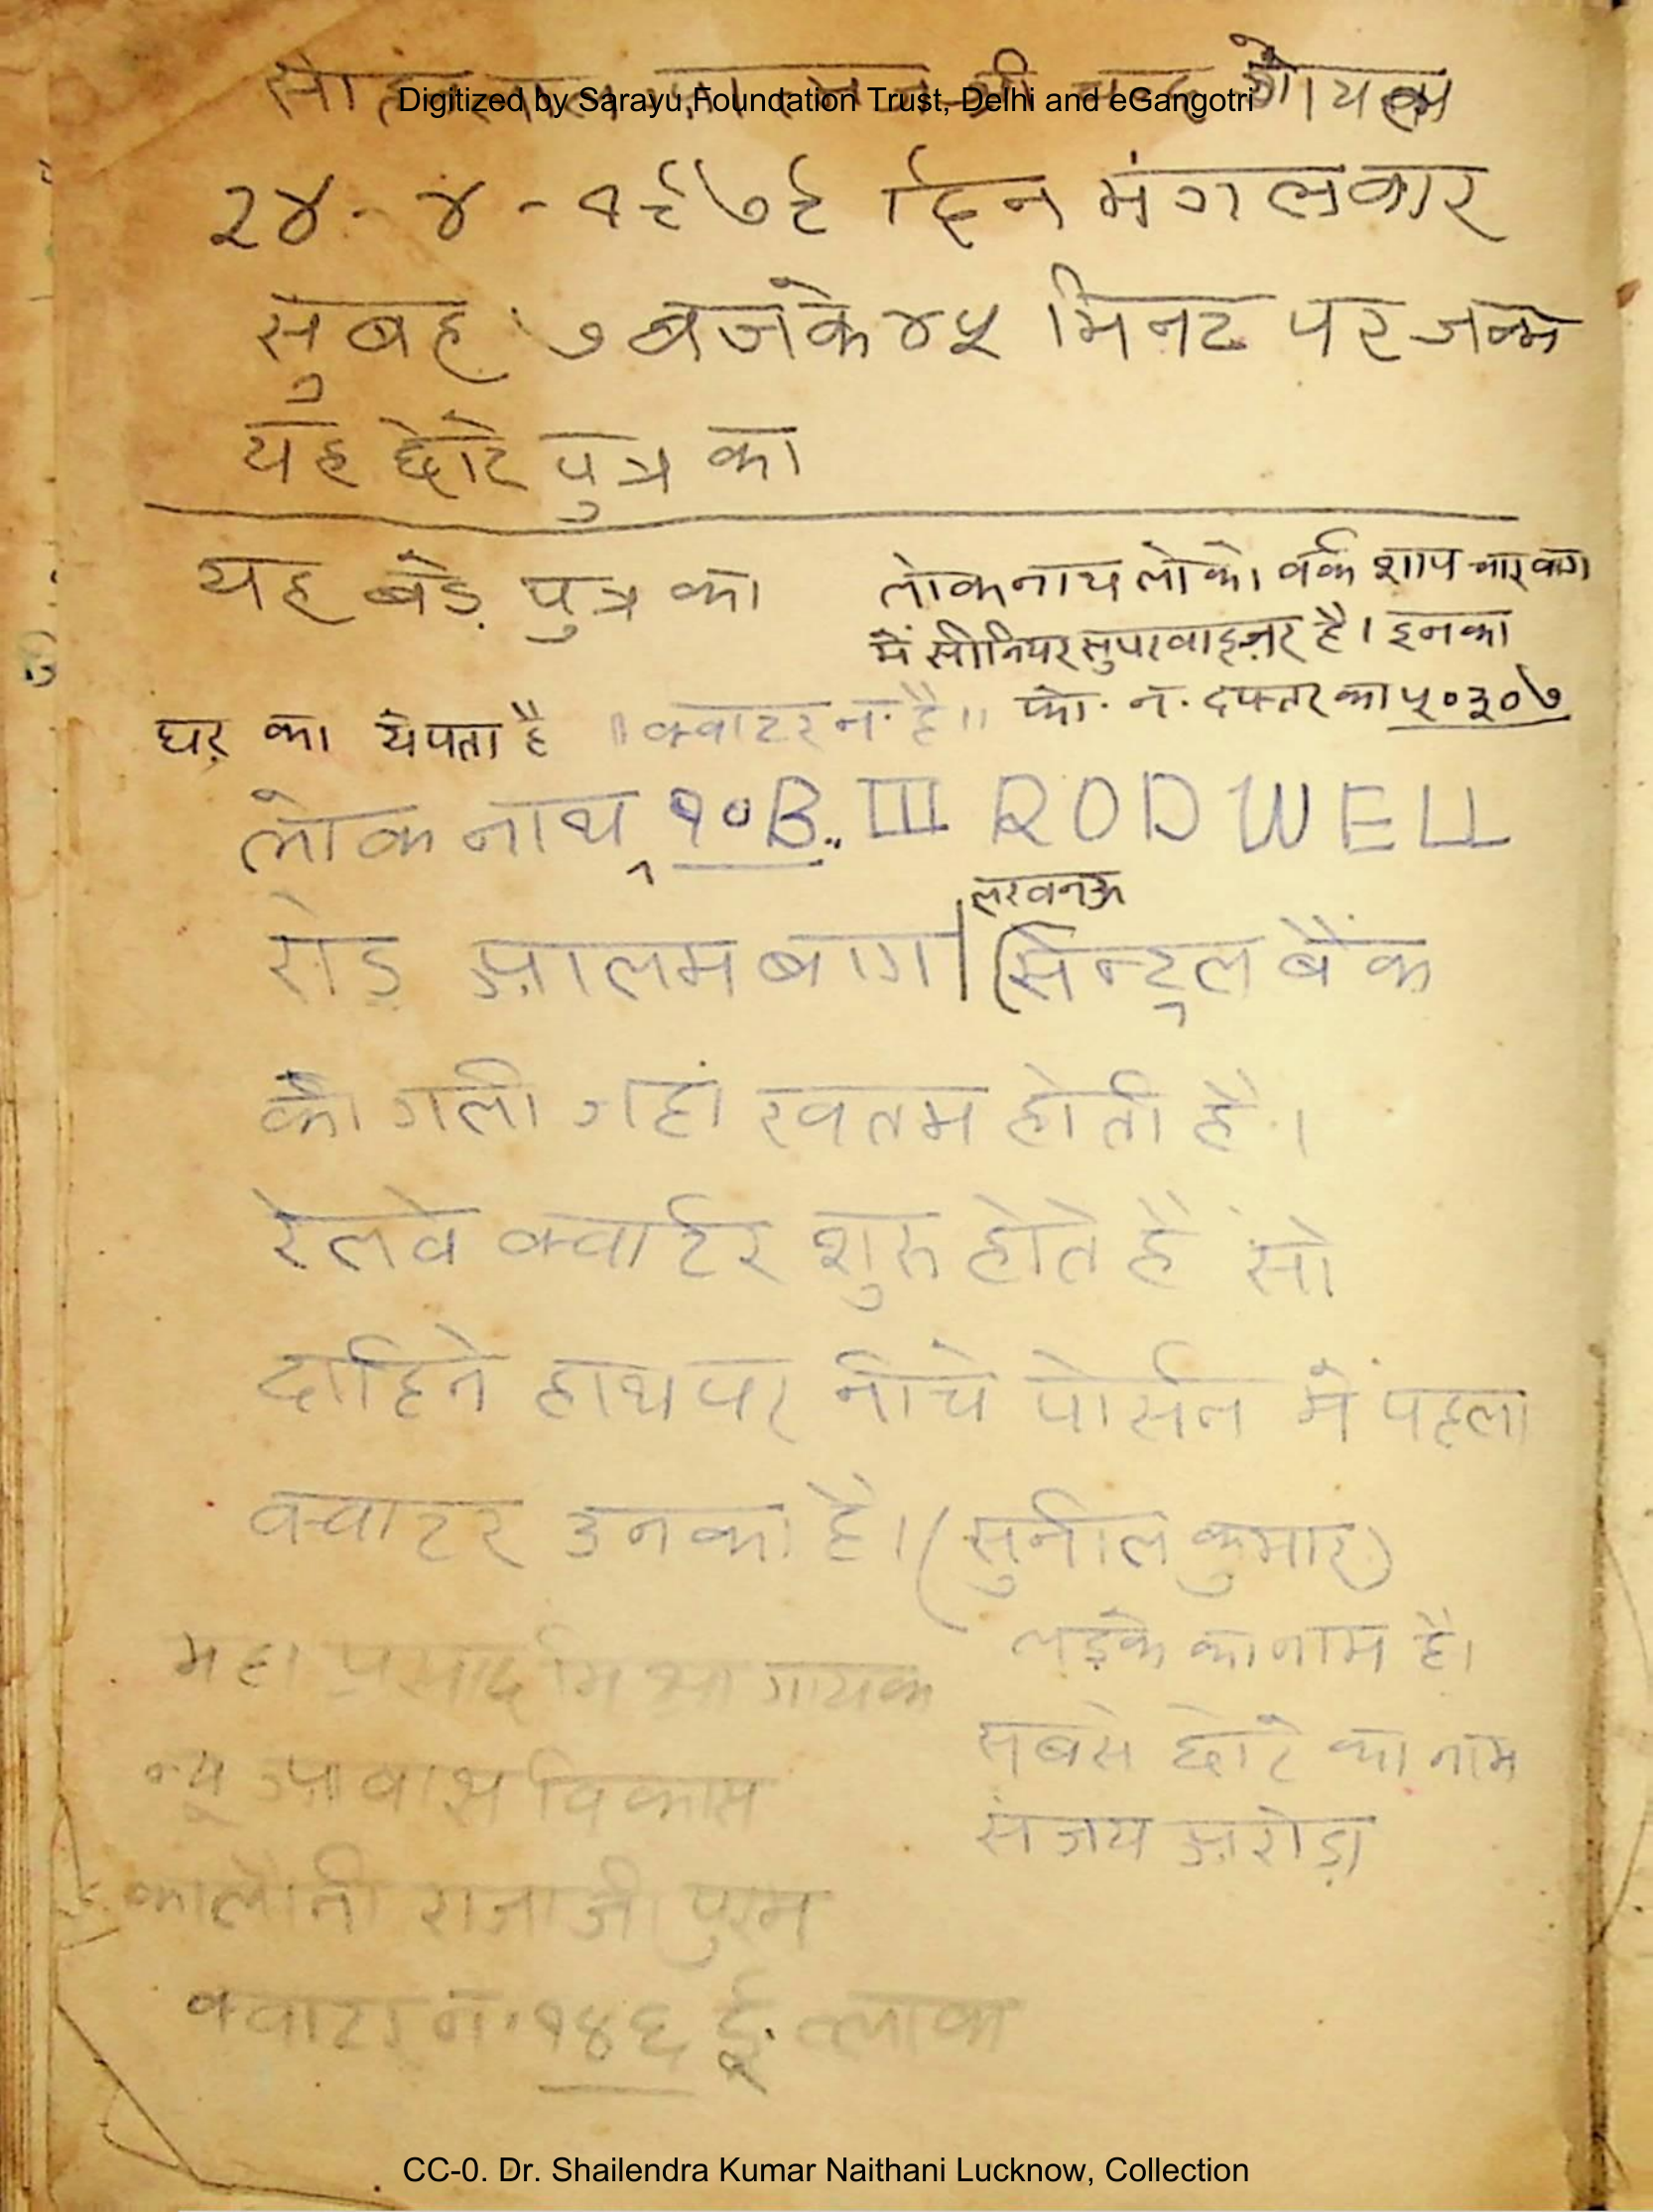 Digitized by Sarayu Foundation Trust, Delhi and eGangotri
२४-४-१९७९ दिन मंगलवार
सुबह ७ बजके ४५ मिनट पर जन्म
यह छोटे पुत्र का
यह बड़े पुत्र का
लोकनाथ लोको वर्क शाप चारबाग
में सीनियर सुपरवाइज़र है। इनका
फो. न. दफ्तर का ५०३०७
घर का ये पता है "क्वाटर न. है"
लोकनाथ, १०B. III RODWELL
लखनऊ
रोड आलमबाग (सेन्ट्रल बैंक
की गली जहां खतम होती है।
रेलवे क्वार्टर शुरू होते हैं सो
दाहिने हाथ पर नीचे पोर्सन में पहला
क्वाटर उनका है। (सुनील कुमार)
लड़के का नाम है।
सबसे छोटे का नाम
संजय अरोड़ा
महा प्रसाद मिश्रा गायक
न्यू आवास विकास
कालौनी राजाजी पुरम
क्वाटर न. १४६ ई. ब्लाक
CC-0. Dr. Shailendra Kumar Naithani Lucknow, Collection